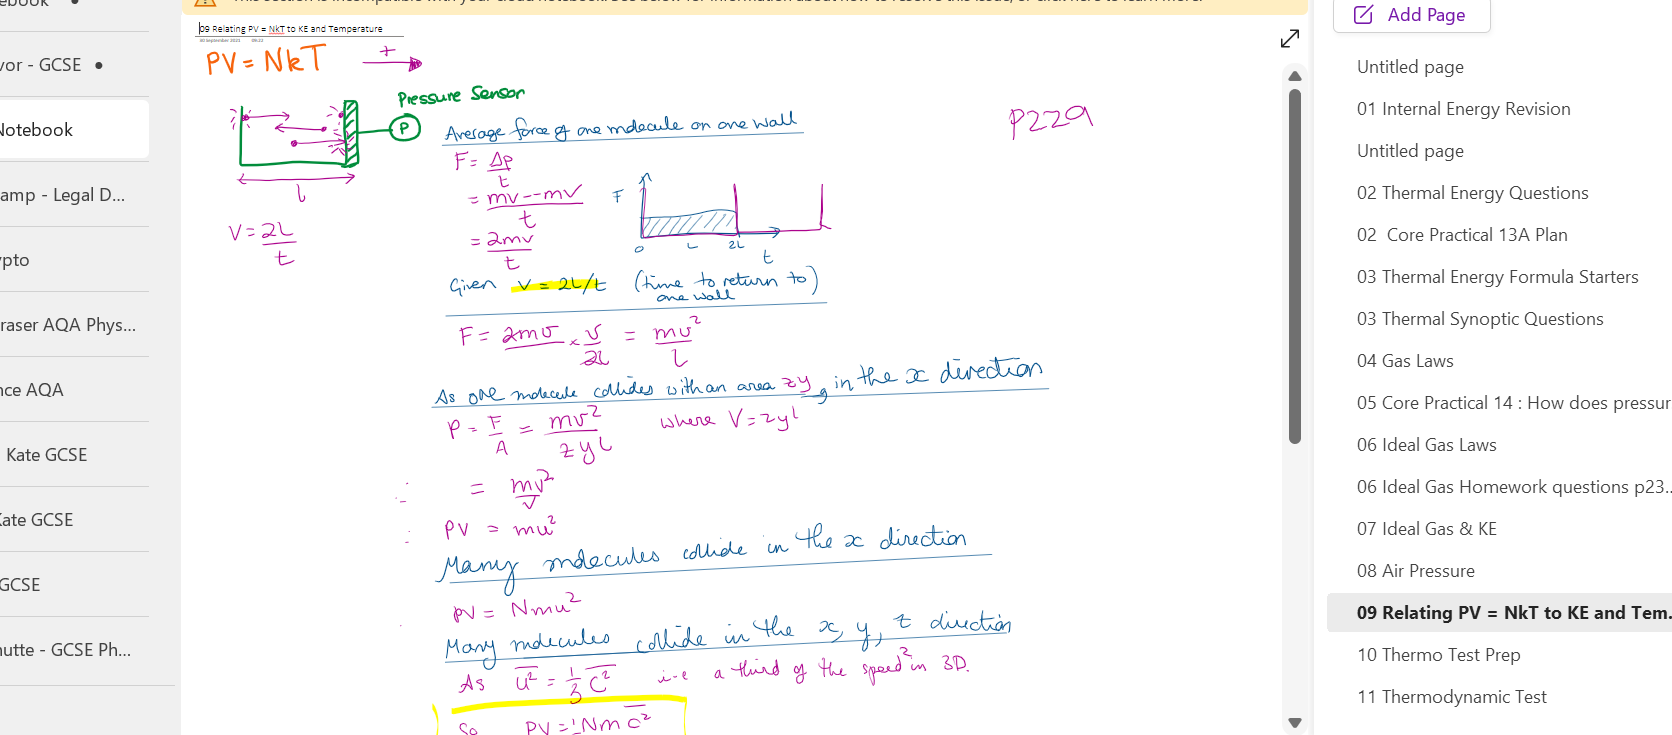 ebook •
vor - GCSE •
Notebook
amp - Legal D...
ypto
raser AQA Phys...
nce AQA
Kate GCSE
Kate GCSE
GCSE
hutte - GCSE Ph...
09 Relating PV = NkT to KE and Temperature
PV = NkT
+
Pressure Sensor
P
l
V = 2L
t
P229
Average force of one molecule on one wall
F = Δp
t
= mv--mv
t
= 2mv
t
F
0 L 2L
t
Given v = 2L/t (time to return to)
one wall
F = 2mv × v = mv²
2l l
As one molecule collides with an area zy, in the x direction
P = F = mv² where V = zyl
A zyl
∴ = mv²
V
∴ PV = mu²
Many molecules collide in the x direction
pV = Nmu²
Many molecules collide in the x, y, z direction
As u² = 1/3 c² i-e a third of the speed² in 3D.
So PV = 1Nmc²
Add Page
Untitled page
01 Internal Energy Revision
Untitled page
02 Thermal Energy Questions
02 Core Practical 13A Plan
03 Thermal Energy Formula Starters
03 Thermal Synoptic Questions
04 Gas Laws
05 Core Practical 14 : How does pressur
06 Ideal Gas Laws
06 Ideal Gas Homework questions p23..
07 Ideal Gas & KE
08 Air Pressure
09 Relating PV = NkT to KE and Tem.
10 Thermo Test Prep
11 Thermodynamic Test